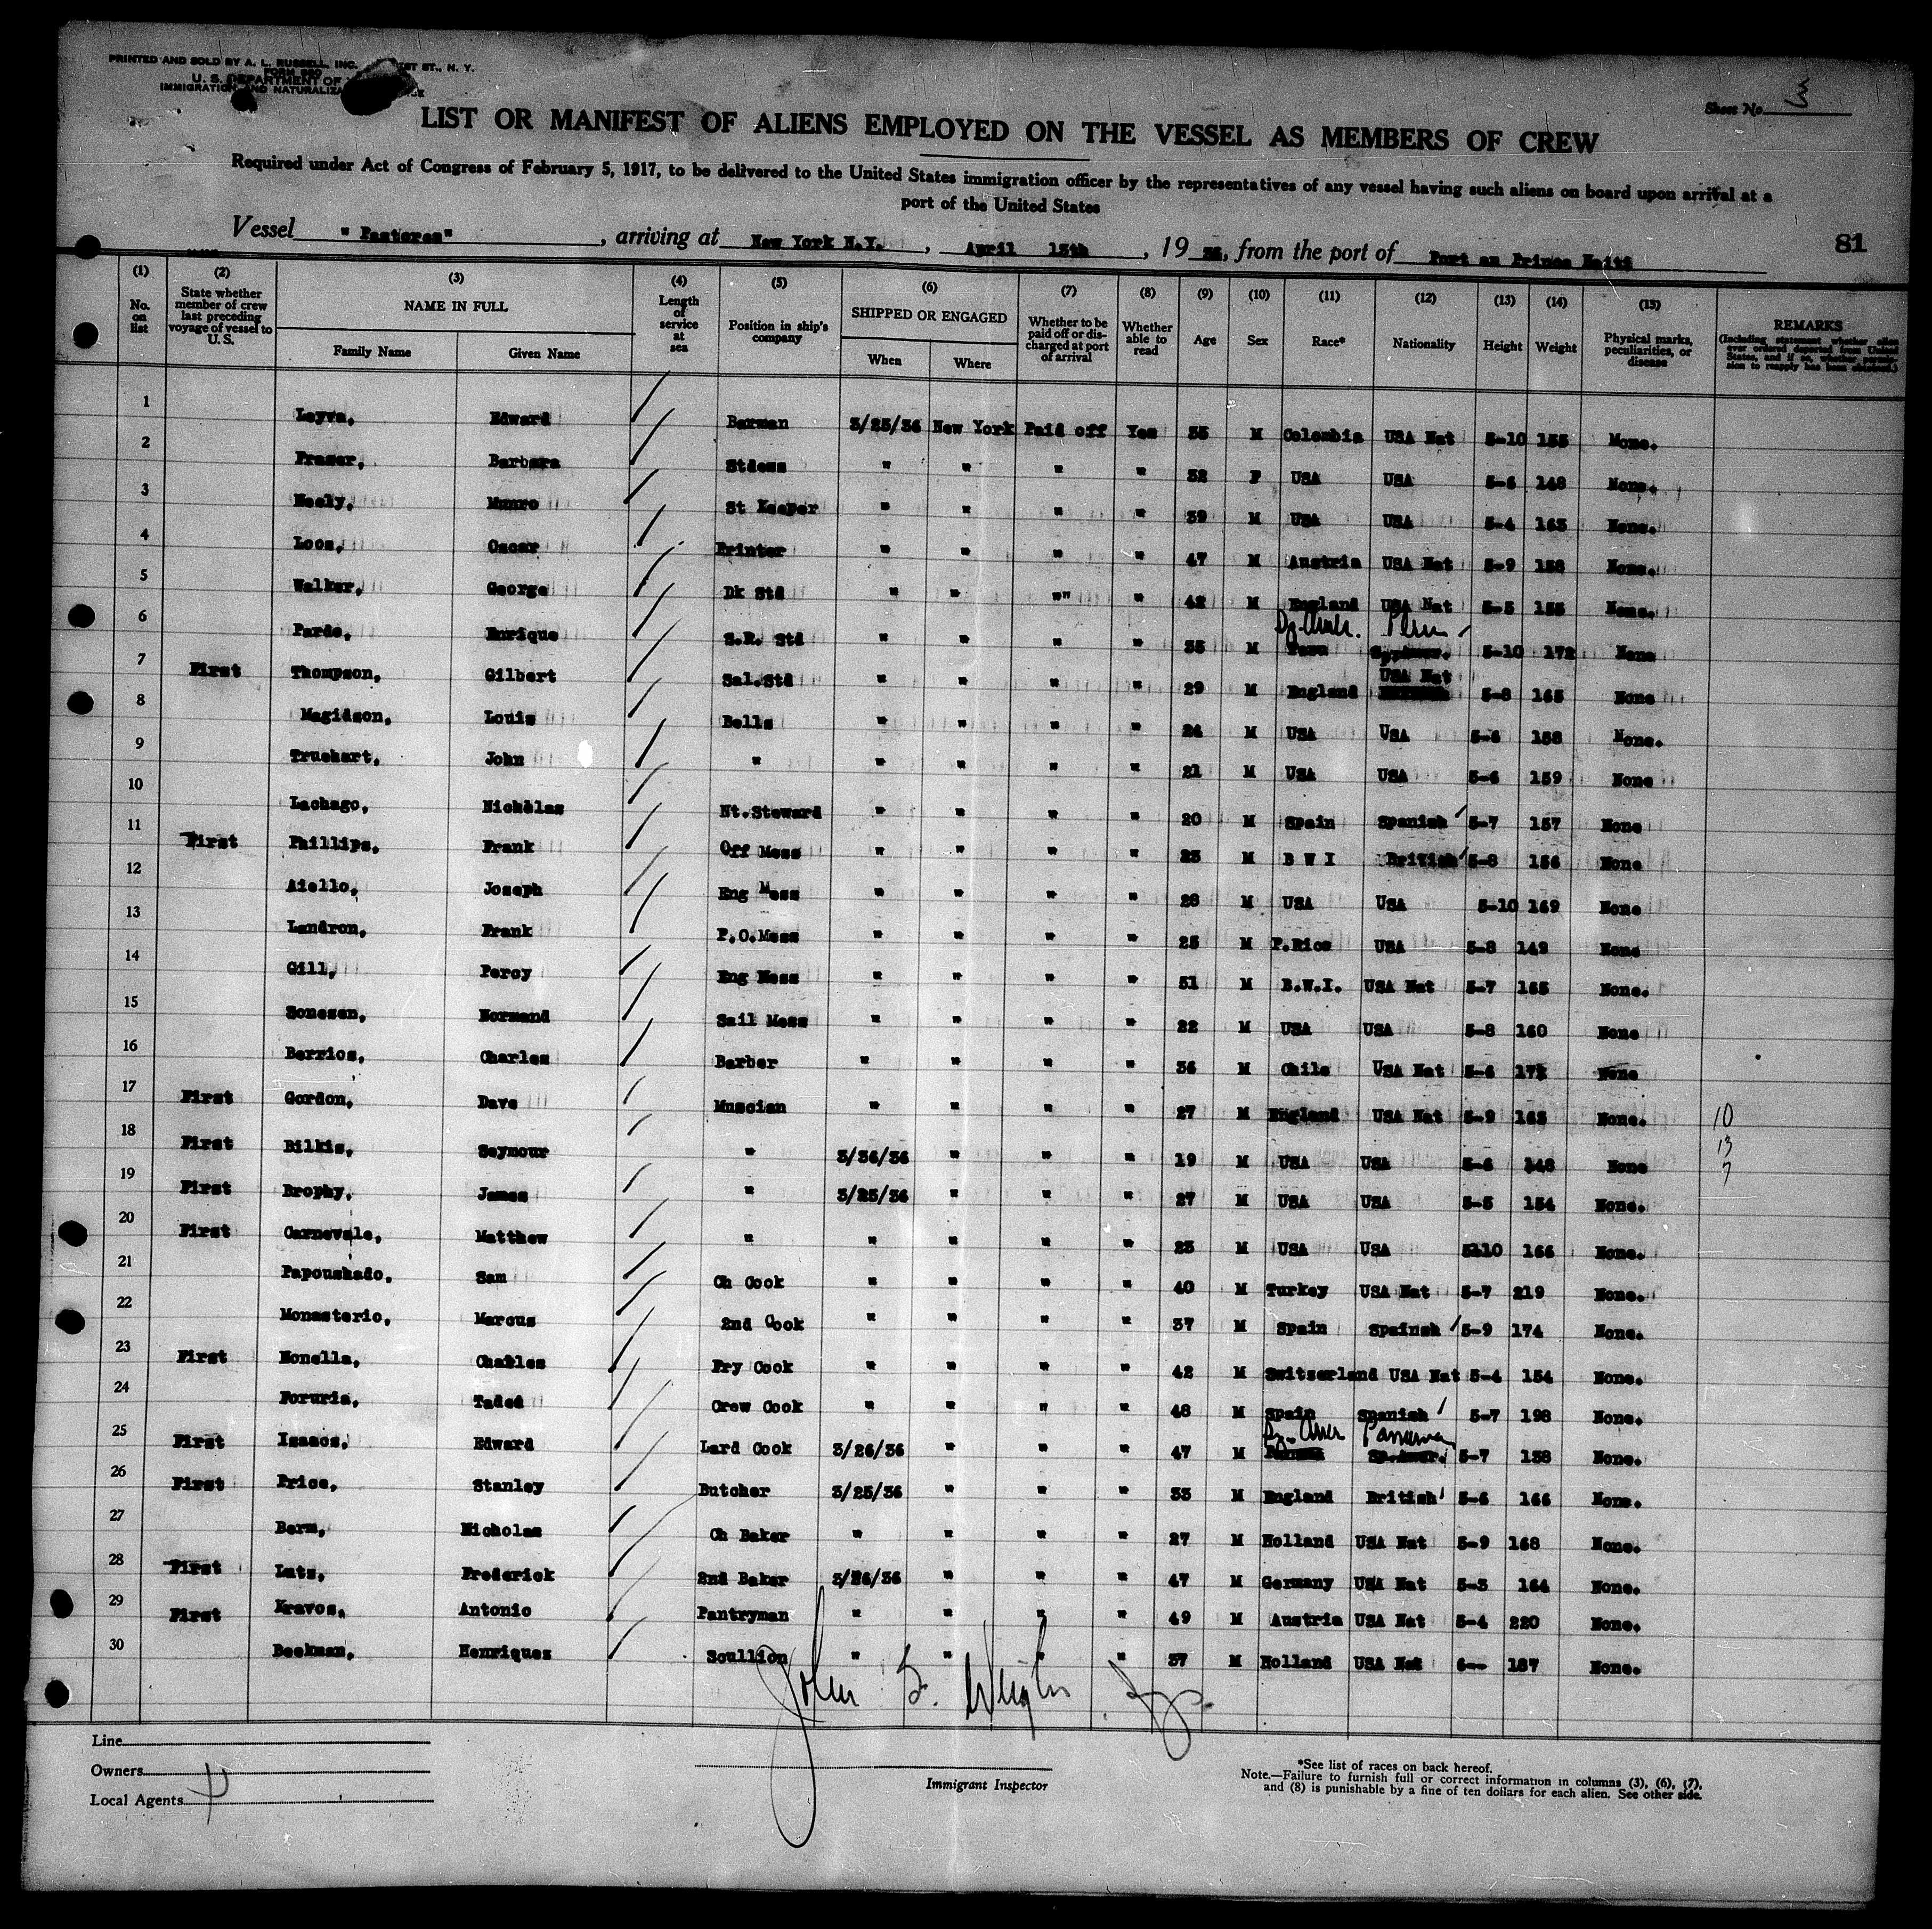 PRINTED AND SOLD BY A. L. RUSSELL, INC. ST., N. Y.
U. S. DEPARTMENT OF
IMMIGRATION AND
Sheet No. 3
LIST OR MANIFEST OF ALIENS EMPLOYED ON THE VESSEL AS MEMBERS OF CREW
Required under Act of Congress of February 5, 1917, to be delivered to the United States immigration officer by the representatives of any vessel having such aliens on board upon arrival at a
port of the United States
81
Vessel "Pastores", arriving at New York N.Y., April 13th, 19 36, from the port of Port au Prince Haiti
(1) (2) (3) (4) (5) (6) (7) (8) (9) (10) (11) (12) (13) (14) (15)
No. on list State whether member of crew last preceding voyage of vessel to U. S. NAME IN FULL Family Name Given Name Length of service at sea Position in ship's company SHIPPED OR ENGAGED When Where Whether to be paid off or discharged at port of arrival Whether able to read Age Sex Race* Nationality Height Weight Physical marks, peculiarities, or disease REMARKS (Including statement whether alien ever ordered deported from United States, and if so, whether permission to reapply has been obtained.)
1 Leyva, Edward Barman 3/25/36 New York Paid off Yes 35 M Colombia USA Nat 5-10 155 None.
2 Fraser, Barbara Stdess " " " " 32 F USA USA 5-6 148 None.
3 Neely, Munro St Keeper " " " " 39 M USA USA 5-4 163 None.
4 Loos, Oscar Printer " " " " 47 M Austria USA Nat 5-9 158 None.
5 Walker, George Dk Std " " "" " 42 M England USA Nat 5-5 155 None.
6 Pardo, Enrique S.R. Std " " " " 35 M Peru Sp.Amer. Peru 5-10 172 None
7 First Thompson, Gilbert Sal.Std " " " " 29 M England USA Nat 5-8 165 None
8 Magidson, Louis Bells " " " " 24 M USA USA 5-6 158 None.
9 Truehart, John " " " " " 21 M USA USA 5-6 159 None
10 Lachago, Nicholas Nt.Steward " " " " 20 M Spain Spanish 5-7 157 None
11 First Phillips, Frank Off Mess " " " " 23 M B W I British 5-8 156 None
12 Aiello, Joseph Eng Mess " " " " 28 M USA USA 5-10 169 None
13 Landron, Frank P.O.Mess " " " " 25 M P.Rico USA 5-8 149 None
14 Gill, Percy Eng Mess " " " " 51 M B.W.I. USA Nat 5-7 165 None.
15 Sonesen, Normand Sail Mess " " " " 22 M USA USA 5-8 160 None
16 Berrios, Charles Barber " " " " 36 M Chile USA Nat 5-6 None
17 First Gordon, Dave Muscian " " " " 27 M England USA Nat 5-9 163 None. 10
18 First Bilkis, Seymour " 3/36/36 " " " 19 M USA USA 5-6 148 None 13
7
19 First Brophy, James " 3/25/36 " " " 27 M USA USA 5-5 154 None.
20 First Carnevale, Matthew " " " " " 23 M USA USA 5-10 166 None.
21 Papoushado, Sam Ch Cook " " " " 40 M Turkey USA Nat 5-7 219 None.
22 Monasterio, Marcus 2nd Cook " " " " 37 M Spain Spainsh 5-9 174 None.
23 First Nonella, Charles Fry Cook " " " " 42 M Switserland USA Nat 5-4 154 None.
24 Foruria, Taded Crew Cook " " " " 48 M Spain Spanish 5-7 198 None.
25 First Isaacs, Edward Lard Cook 3/26/36 " " " 47 M Sp. Amer. Panama 5-7 138 None.
26 First Price, Stanley Butcher 3/25/36 " " " 33 M England British 5-6 166 None.
27 Berm, Nicholas Ch Baker " " " " 27 M Holland USA Nat 5-9 168 None.
28 First Lutz, Frederick 2nd Baker 3/26/36 " " " 47 M Germany USA Nat 5-3 164 None.
29 First Kravos, Antonio Pantryman " " " " 49 M Austria USA Nat 5-4 220 None.
30 Beekman, Henriques Scullion " " " " 37 M Holland USA Nat 6-- 187 None.
Line
Owners
Local Agents
Immigrant Inspector
*See list of races on back hereof.
Note.—Failure to furnish full or correct information in columns (3), (6), (7),
and (8) is punishable by a fine of ten dollars for each alien. See other side.